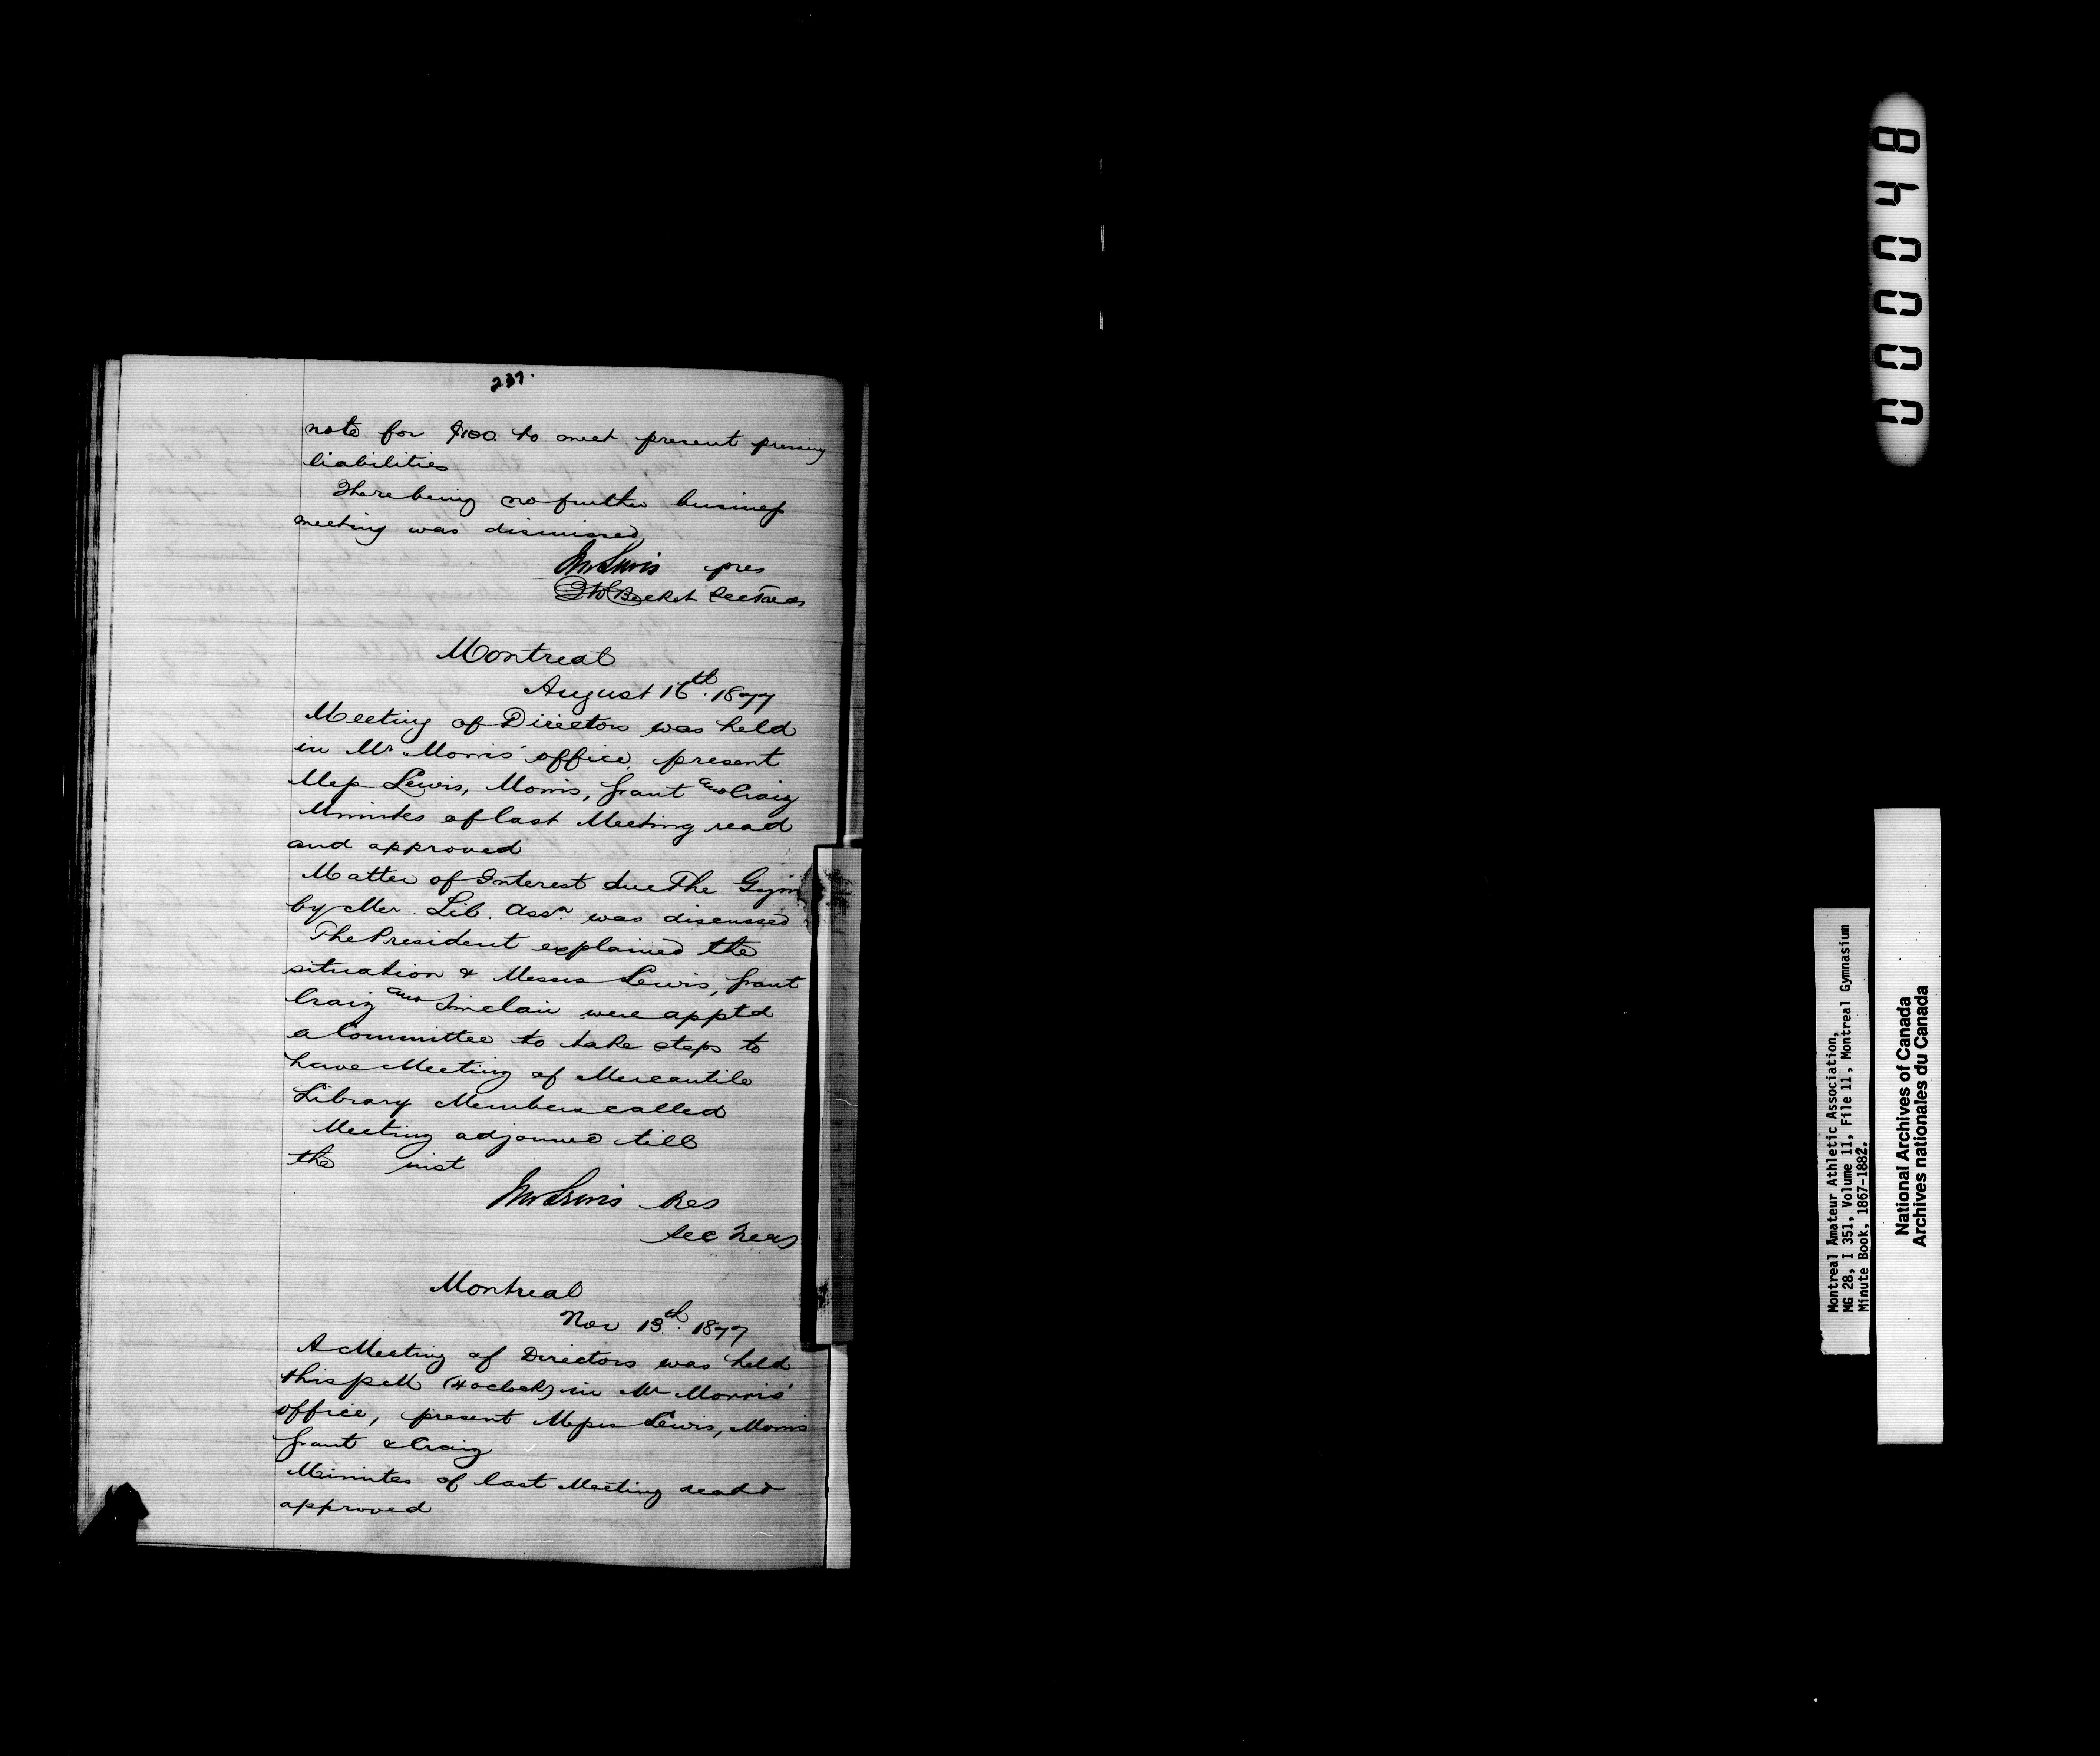 237.
note for $100 to meet present pressing
liabilities
There being no further business
meeting was dismissed
pres
Becket Sec Treas
Montreal
August 16th. 1877
Meeting of Directors was held
in Mr Morris' office, present
Mess Lewis, Morris, Grant and Craig
Minutes of last Meeting read
and approved
Matter of Interest due The Gym
by Mer. Lib. Assn. was discussed
The President explained the
situation & Messrs Lewis, Grant
Craig and Sinclair were apptd
a Committee to take steps to
have Meeting of Mercantile
Library Members called
Meeting adjourned till
the inst
Pres
Sec Treas
Montreal
Nov 13th. 1877
A Meeting of Directors was held
this p M (4 oclock) in Mr Morris'
office, present Messrs Lewis, Morris
Grant & Craig
Minutes of last Meeting read &
approved
840000
Montreal Amateur Athletic Association,
MG 28, I 351, Volume 11, File 11, Montreal Gymnasium
Minute Book, 1867-1882.
National Archives of Canada
Archives nationales du Canada